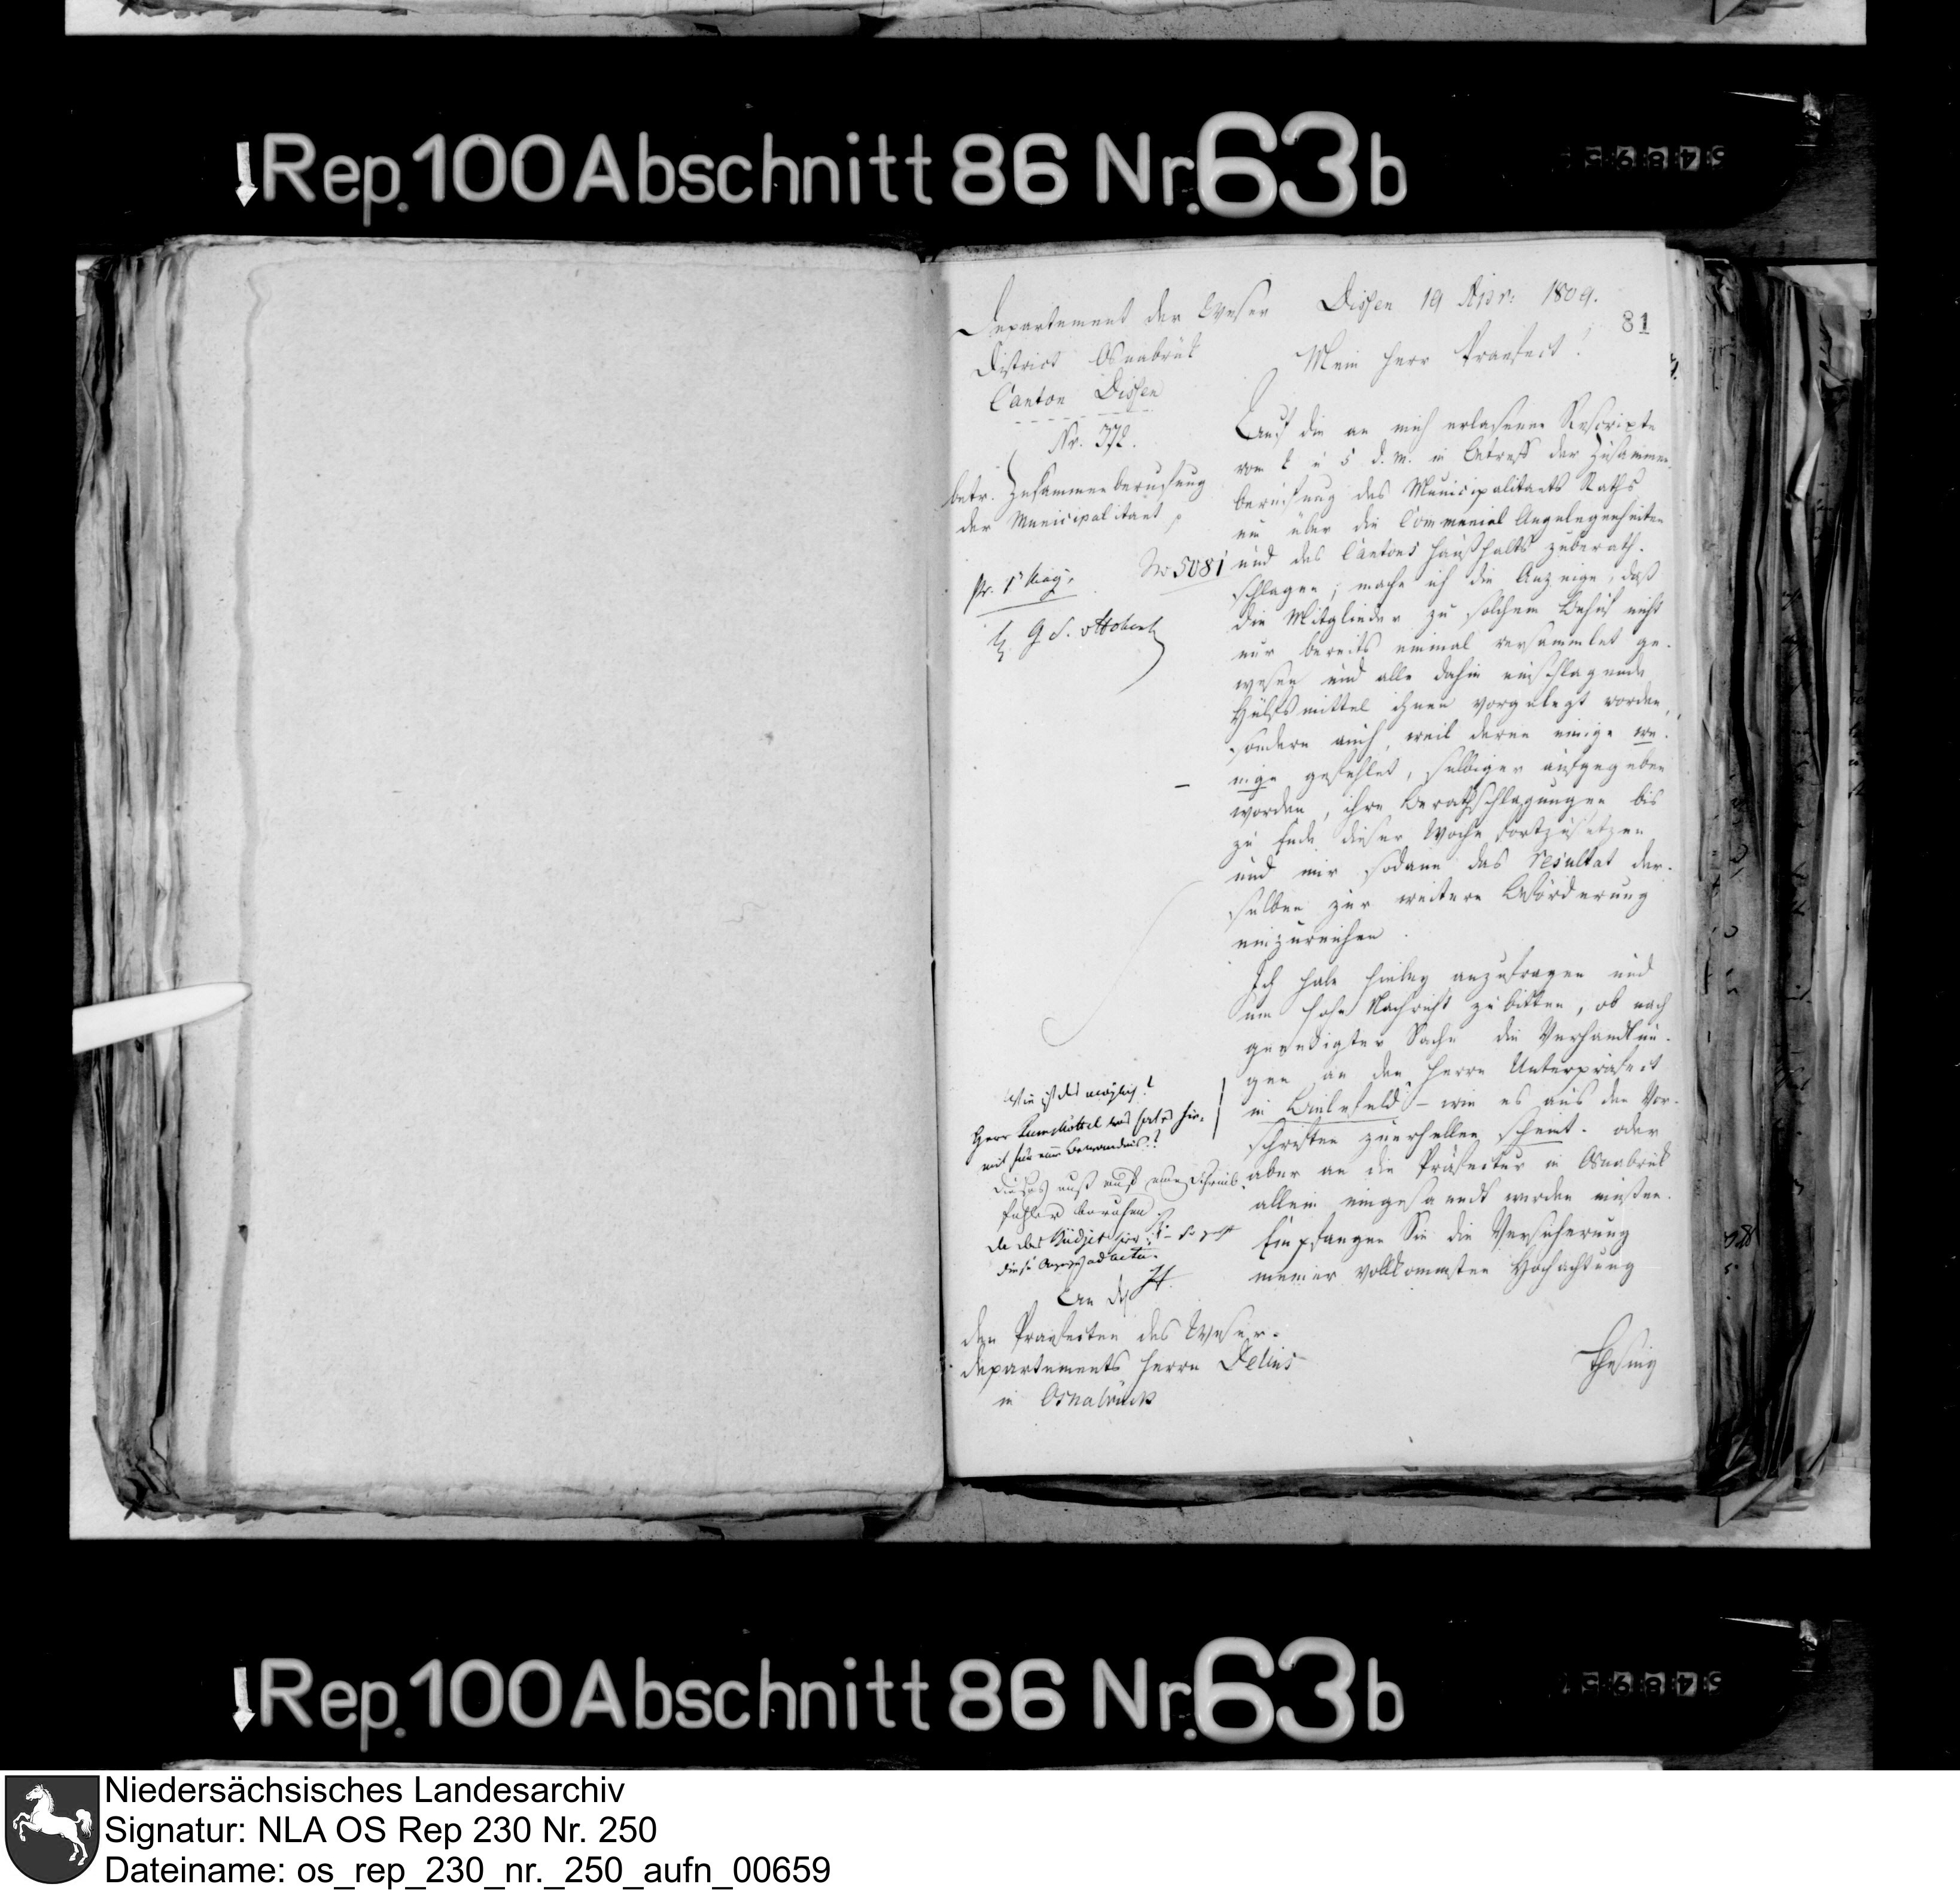 Rep. 100 Abschnitt 86 Nr. 63b
Departement der Weser
District Osnabrük
Canton Dissen
Nr. 372.
betr. Zusammenberufung
der Municipalitaet
pr. 1 May
No 5081
Dissen 19 Apr: 1809.
81
Mein Herr Praefect!
Auf die an mich erlasene Rescripte
vom u 5 d. M. in Betreff der Zusammen-
berufung des Municipalitaets Raths
um über die Communal Angelegenheiten
und des Cantons Haushalts zuberath-
schlagen; mache ich die Anzeige, daß
die Mitglieder zu solchem Behuf nicht
nur bereits einmal versammlet ge-
wesen und alle dahin einschlagende
Hülfsmittel ihnen vorgelegt worden,
sondern auch, weil deren einige we-
nige gefehlet, selbigen aufgegeben
worden, ihre Berathschlagungen bis
zu Ende dieser Woche fortzusetzen
und mir sodann das Resultat der-
selben zur weitere Beförderung
einzureichen.
Ich habe hiebey anzufragen und
um hohe Nachricht zu bitten, ob nach
geendigter Sache die Verhandlun-
gen an den Herrn Unterpräfect
in Bielefeld – wie es aus den Vor-
schriften zuerhellen scheint – oder
aber an die Präfectur in Osnabrük
allein eingesandt werden müßen.
Empfangen Sie die Versicherung
meiner vollkommsten Hochachtung
Thesing
Wie ist das möglich?
Herr was hat es hie-
mit für eine Bewandniß?
Dieses muß auf einem Schreib-
fehler beruhen.
da das Büdjet
diese ad acta.
An
den Praefecten des Weser-
departements Herrn Delius
in Osnabrück
Rep. 100 Abschnitt 86 Nr. 63b
Niedersächsisches Landesarchiv
Signatur: NLA OS Rep 230 Nr. 250
Dateiname: os_rep_230_nr._250_aufn_00659